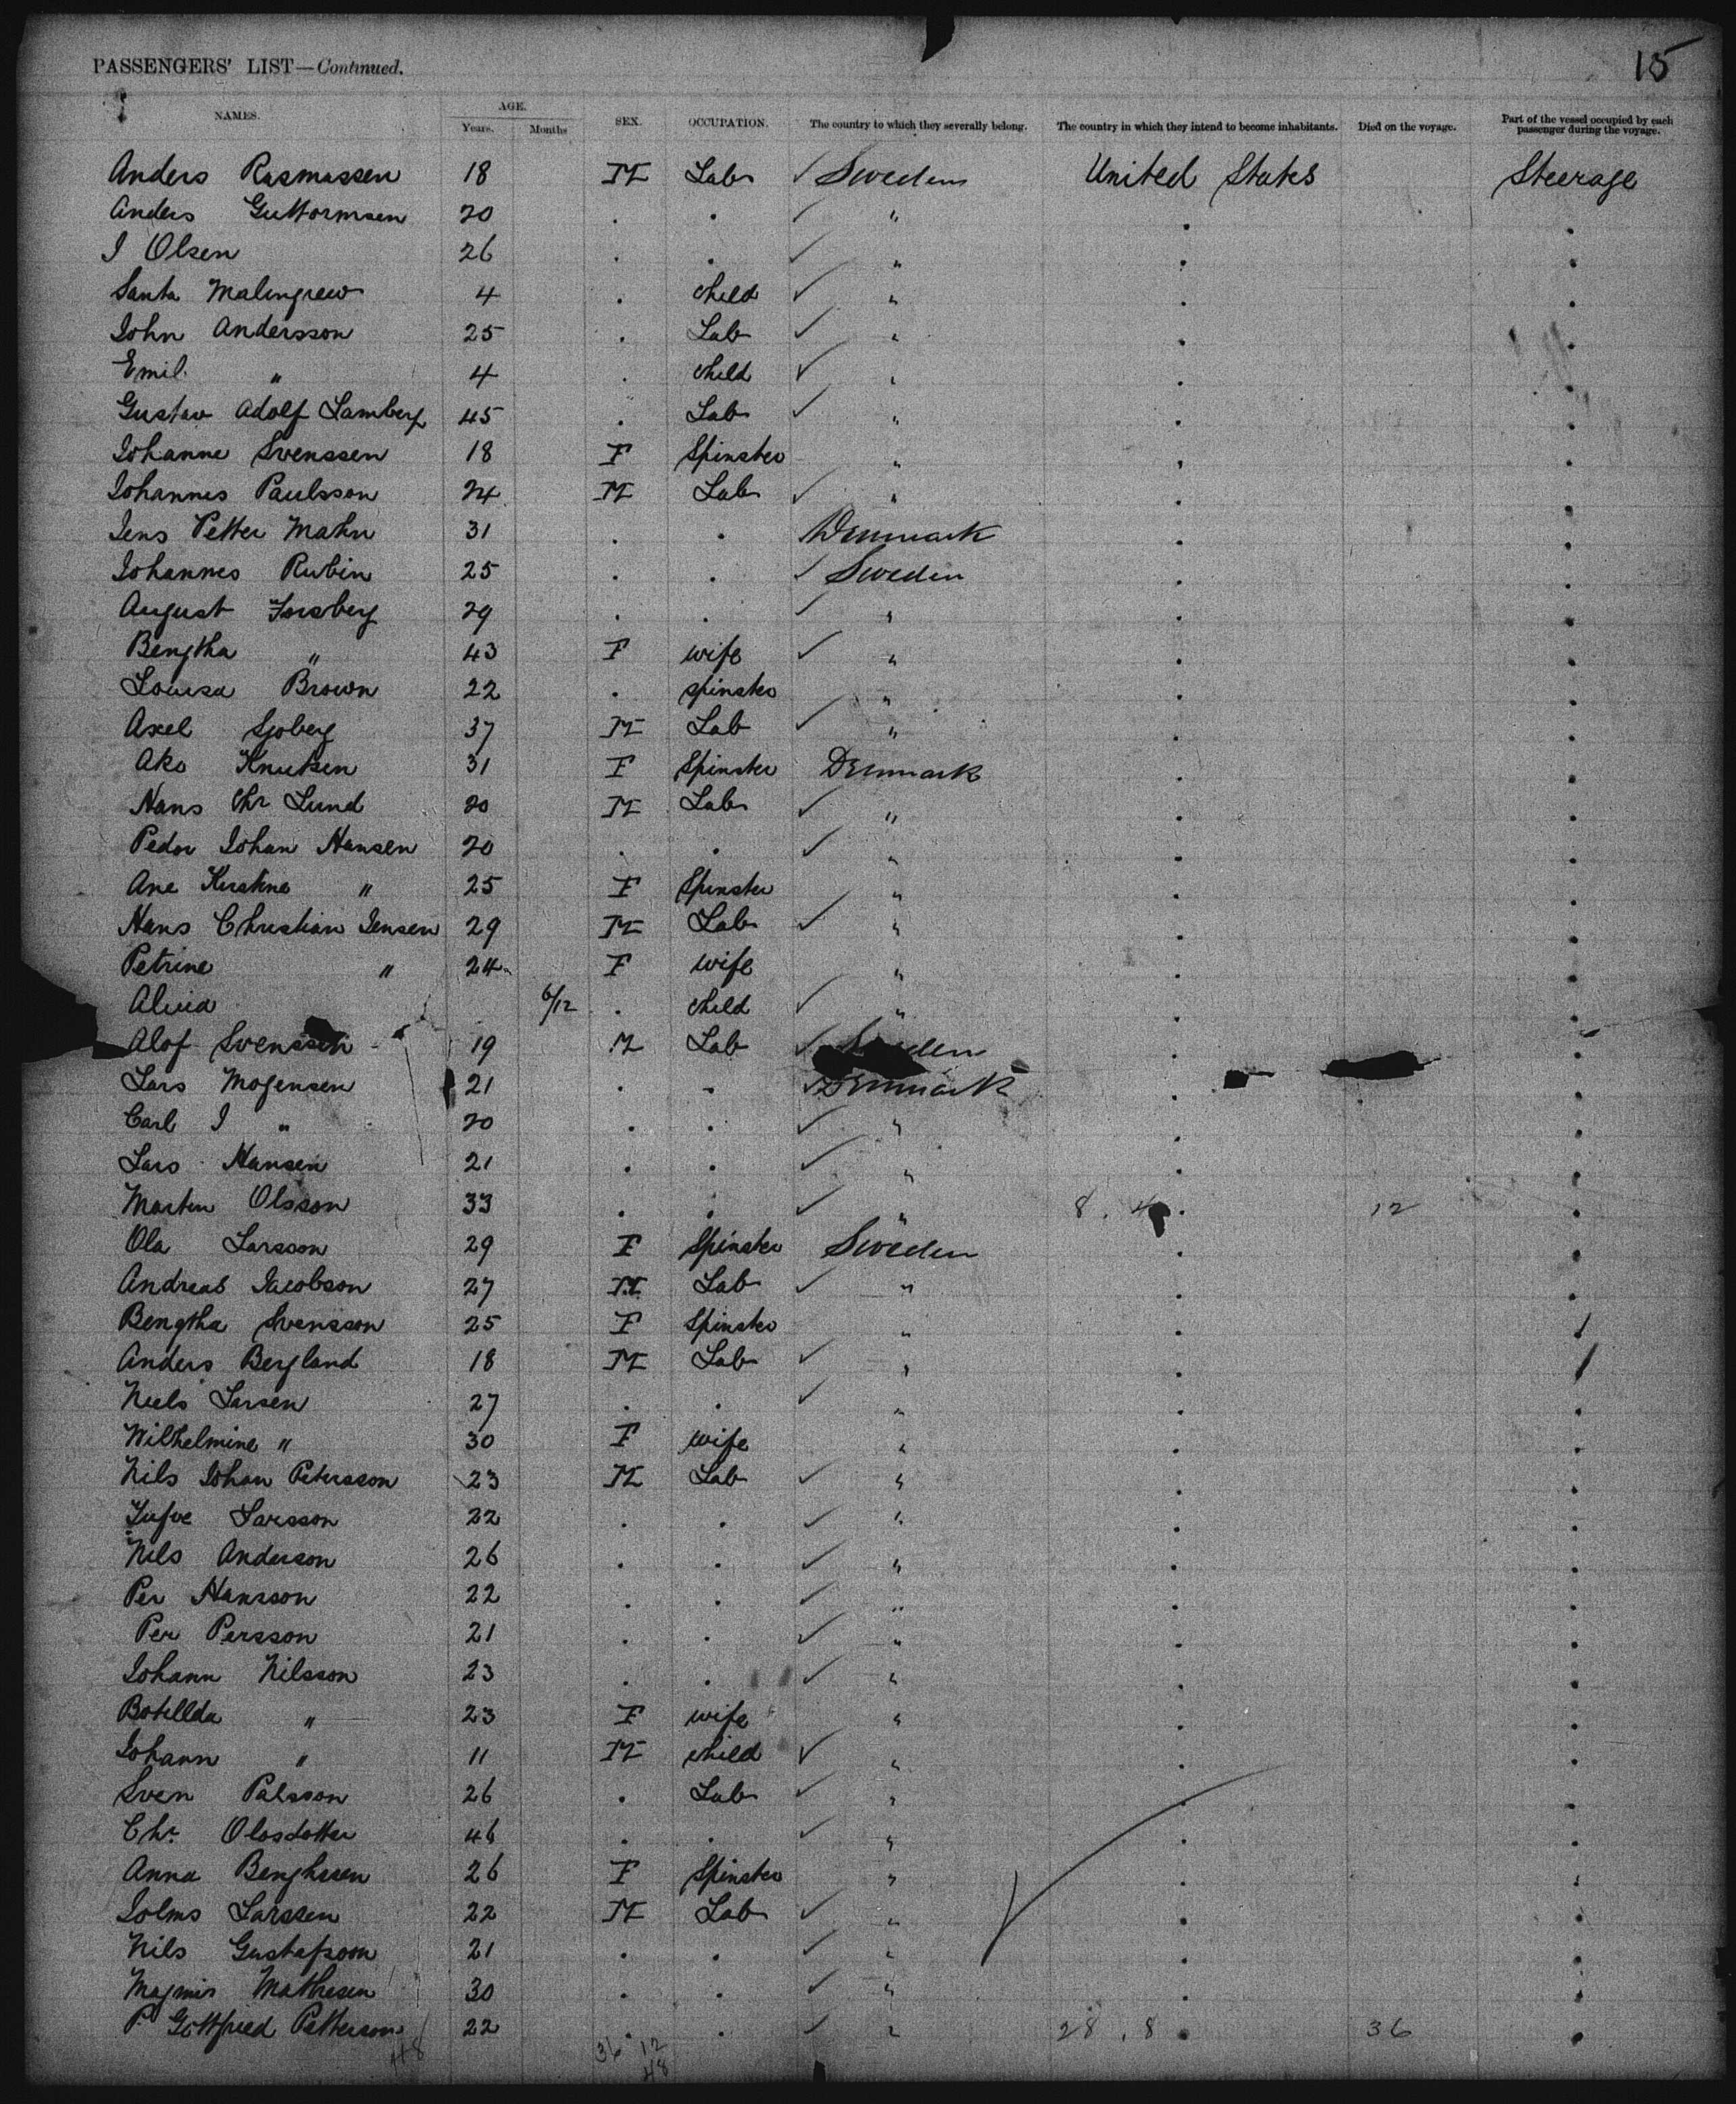 PASSENGERS' LIST—Continued. 15
NAMES. AGE. Years. Months SEX. OCCUPATION. The country to which they severally belong. The country in which they intend to become inhabitants. Died on the voyage. Part of the vessel occupied by each passenger during the voyage.
Anders Rasmussen 18 M Lab ✓ Sweden United States Steerage
Anders Guttormsen 20 . . ✓ " . .
I Olsen 26 . . ✓ " . .
Santa Malmgrew 4 . child ✓ " . .
John Andersson 25 . Lab ✓ " . .
Emil " 4 . child ✓ " . .
Gustav Adolf Lamberg 45 . Lab ✓ " . .
Johanne Svenssen 18 F Spinster " . .
Johannes Paulsson 24 M Lab ✓ " . .
Jens Petter Mahn 31 . . Denmark . .
Johannes Rubin 25 . . ✓ Sweden . .
August Forsberg 29 . . ✓ " . .
Bengtha " 43 F wife ✓ " . .
Louisa Brown 22 . spinster " . .
Axel Sjoberg 37 M Lab ✓ " . .
Ake Knutsen 31 F Spinster Denmark . .
Hans Chr Lund 20 M Lab ✓ " . .
Peder Johan Hansen 20 . . ✓ " . .
Ane Kirstine " 25 F Spinster " . .
Hans Christian Jensen 29 M Lab ✓ " . .
Petrine " 24 F wife " . .
Alvia 6/12 . child ✓ " . .
Alof Svenssen 19 M Lab ✓ Sweden . .
Lars Mogensen 21 . . ✓ Denmark . .
Carl J " 20 . . ✓ " . .
Lars Hansen 21 . . ✓ " . .
Morten Olsson 33 . . ✓ " 8 . 4 . 12 .
Ola Larsson 29 F Spinster Sweden . .
Andreas Jacobson 27 M Lab ✓ " . .
Bengtha Svensson 25 F Spinster " . .
Anders Bergland 18 M Lab ✓ " . .
Niels Larsen 27 . . ✓ " . .
Wilhelmine " 30 F wife " . .
Nils Johan Petersson 23 M Lab ✓ " . .
Tufve Larsson 22 . . ✓ " . .
Nils Anderson 26 . . ✓ " . .
Per Hansson 22 . . ✓ " . .
Per Persson 21 . . ✓ " . .
Johann Nilsson 23 . . ✓ " . .
Botellda " 23 F wife " . .
Johann " 11 M child ✓ " . .
Sven Palsson 26 . Lab ✓ " . .
Chr. Olosdotter 46 . . ✓ " . .
Anna Benghssen 26 F Spinster " . .
Larssen 22 M Lab ✓ " . .
Nils Gustafsson 21 . . ✓ " . .
Magnus Mathesen 30 . . ✓ " . .
P. Gottfried Petterson 22 . . ✓ " 28 . 8 . 36 .
48 36 12
48